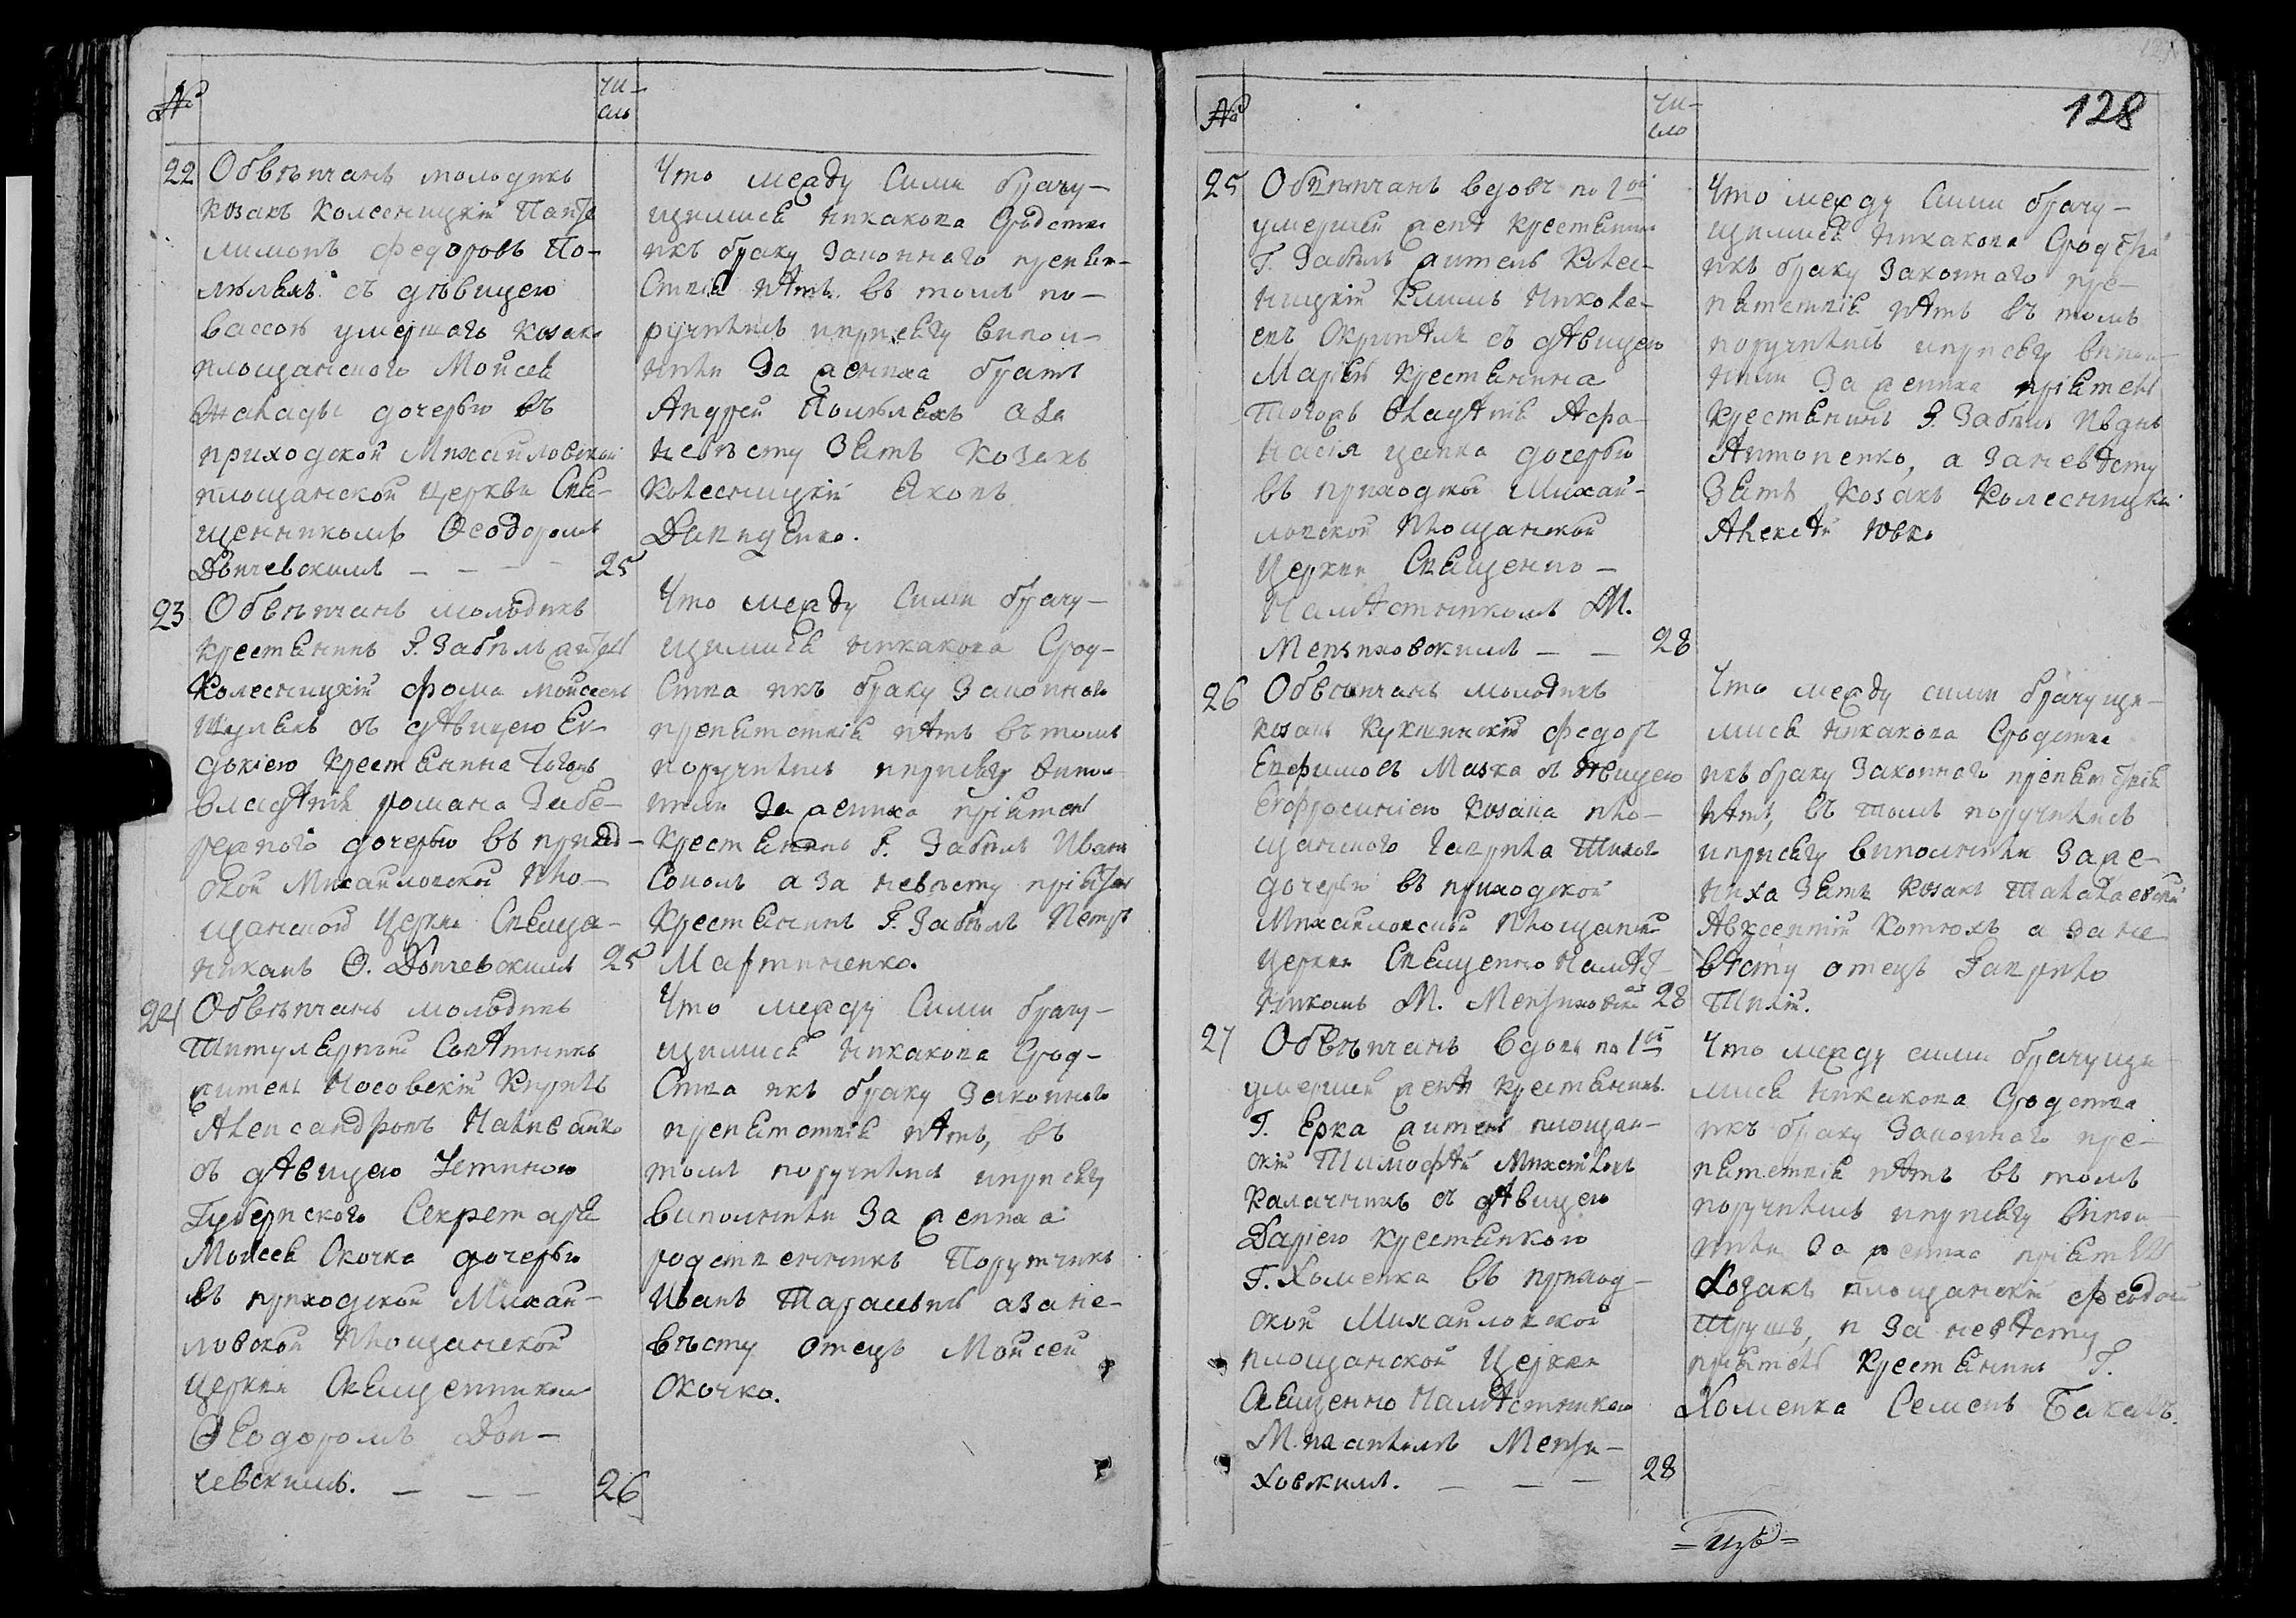 №
чи-
сло
22 Обвѣнчанъ молодикъ
козакъ Колесницкій Панте
лимонъ Федоровъ По-
с дѣвицею
вассою умершаго козака
площанского Мойсея
дочерью въ
приходской Михайловской
площанской церкви Свя-
щенникомъ Ѳеодоромъ
Дончевскимъ — — — 25
Что между Сими брачу-
щимися никакова Сродства
икъ браку Законнаго препят-
ствія нѣтъ въ томъ по-
ручились иприсягу випол-
нили За жениха братъ
Андрей а за
невѣсту Зять Козакъ
Колесницкій Яковъ
Давиденко.
23 Обвѣнчанъ молодикъ
крестянинъ Г. Забѣлы житель
Колесницкій Фома Мойсеевъ
Шулякъ съ дѣвицею Ев-
докіею крестянина тогожъ
владѣнія Романа Забе-
режного дочерью въ приход-
ской Михайловской Пло-
щанской Церкви Свяще-
никомъ Ѳ. Дончевскимъ 25
Что между Сими брачу-
щимися никакова Срод-
ства икъ браку Законного
препятствія нѣтъ въ томъ
поручились иприсягу випол-
нили За жениха пріятель
крестянинъ Г. Забѣлы Иванъ
Соколъ а За невѣсту пріятель
Крестянинъ Г. Забѣлы Петръ
Мартиненко.
24 Обвѣнчанъ молодикъ
Титулярный Совѣтникъ
житель Носовскій Кирилъ
Александровъ Наливайко
съ дѣвицею Устиною
Губернского Секретаря
Мойсея Окочка дочерью
въ приходской Михай-
ловской Площанской
церкви Священникомъ
Ѳеодоромъ Дон-
чевскимъ. — — — 26
Что между Сими брачу-
щимися никакова Срод-
ства икъ браку Законного
препятствія нѣтъ, въ
томъ поручились иприсягу
виполнили За жениха
родственникъ Поручикъ
Иванъ Тарасевичъ азане-
вѣсту отецъ Мойсей
Окочко.
№
чи-
сло
128
25 Обвѣнчанъ вдовъ по 2ой
умершей женѣ крестянинъ
Г. Забѣлы житель Колес-
ницкій Климъ Николае-
въ съ дѣвицею
Маріею Крестянина
Тогожъ владѣнія Афа-
насія Цапка дочерью
въ приходской Михай-
ловской Площанской
Церкви Священно-
Намѣстникомъ М.
Мензиховскимъ — — 28
Что между Сими брачу-
щимися никакова Сродства
икъ браку Законного пре-
пятствія нѣтъ въ томъ
поручились иприсягу випол-
нили За жениха пріятель
Крестянинъ Г. Забѣлы
Антоненко, а Заневѣсту
Зять Козакъ Колесницкій
Алексѣй Ювко
26 Обвѣнчанъ молодикъ
козакъ Кукшинскій Федоръ
Евфимовъ Мазка съ дѣвицею
Евфросиніею Козака Пло-
щанского Гаврила Тихого
дочерью въ приходской
Михайловской Площанской
Церкви Священно Намѣст-
никомъ М. Мензиховски 28
Что между сими брачущи-
мися никакова Сродства
икъ браку Законного препятствія
нѣтъ, въ томъ поручились
иприсягу виполнили Заже-
ниха Зять козакъ Талалаевскій
Авксентій Котюхъ а зане
вѣсту отецъ Гаврило
Тихій.
27 Обвѣнчанъ вдовъ по 1ой
умершей женѣ крестянинъ
Г. Ерка житель площан-
скій Тимофѣй Михайловъ
Калачникъ съ дѣвицею
Даріею крестянкою
Г. Хоменка въ приход-
ской Михайловской
площанской Церкви
Священно Намѣстникомъ
М. Мензи-
ховскимъ. — — — 28
Что между сими брачущи
мися никакова Сродства
икъ браку Законного пре-
пятствія нѣтъ въ томъ
поручились иприсягу випол-
нили За жениха пріятель
Козакъ площанскій Феодосій
Трушъ, а За невѣсту
пріятель Крестянинъ Г.
Хоменка Семенъ Бакалъ.